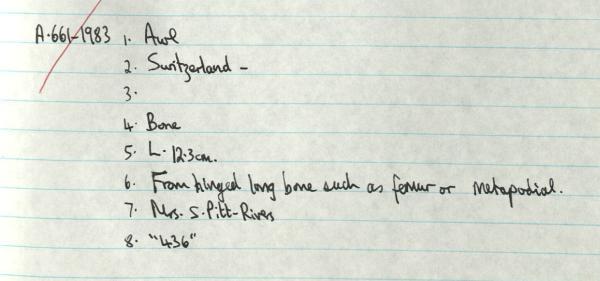 A.661-1983 1. Awl
2. Switzerland -
3.
4. Bone
5. L. 12.3cm.
6. From hinged long bone such as femur or metapodial.
7. Mrs. S. Pitt-Rivers
8. "436"